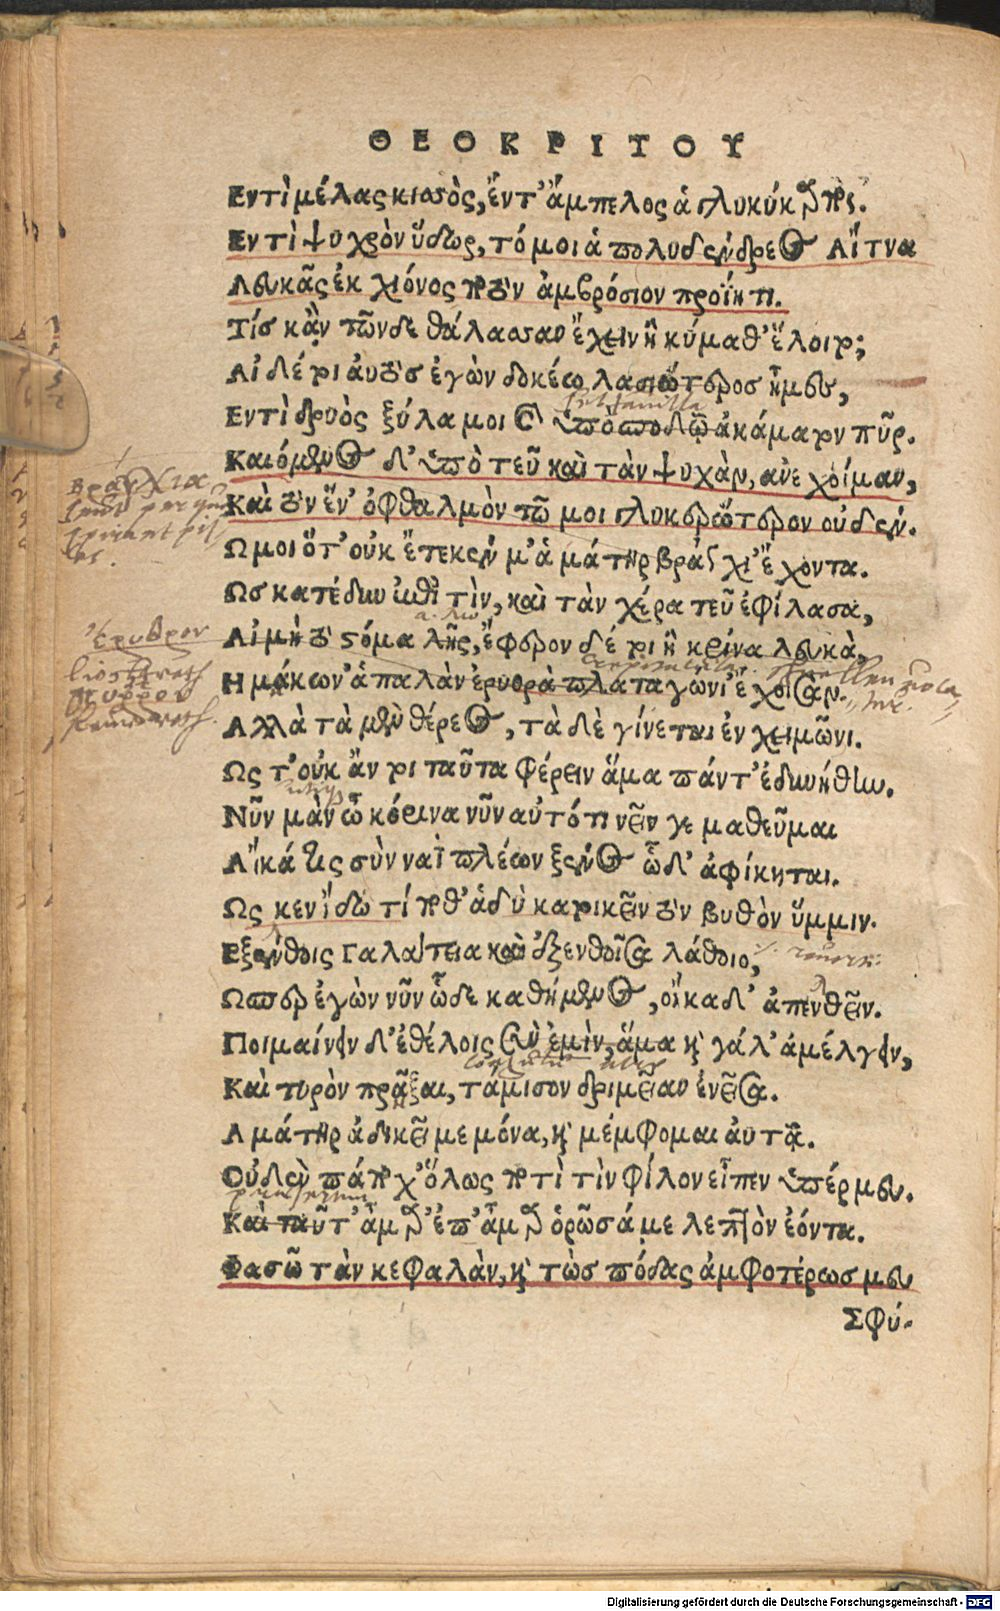 ΘΕΟΚΡΙΤΟΥ
Εντὶ μέλας κισσὸς, ἔντ' ἄμπελος ἁ γλυκύκαρπος.
Εντὶ ψυχρὸν ὕδωρ, τό μοι ἁ πολυδένδρεος Αἴτνα
Λευκᾶς ἐκ χιόνος ποτὸν ἀμβρόσιον προΐητι.
Τίς κὰν τῶνδε θάλασσαν ἔχειν ἢ κύμαθ' ἕλοιτο;
Αἰ δέ τοι ἀυτὸς ἐγὼν δοκέω λασιώτερος ἦμευ,
Εντὶ δρυὸς ξύλα μοι καὶ ὑπὸ σποδῷ ἀκάματον πῦρ.
Καιόμενος δ' ὑπὸ τεῦ καὶ τὰν ψυχὰν, ανεχοίμαν,
Καὶ τὸν ἕν' ὀφθαλμὸν τῶ μοι γλυκερώτερον οὐδέν.
Ω μοι ὅτ' οὐκ ἔτεκέν μ' ἁ μάτηρ βράγχι' ἔχοντα.
Ως κατέδυν ποτὶ τὶν, καὶ τὰν χέρα τεῦ ἐφίλασα,
Αἰ μὴ τὸ στόμα λῇς, ἔφερον δέ τοι ἢ κρίνα λευκὰ,
Η μάκων' ἁπαλὰν ἐρυθρὰ πλαταγώνι' ἔχοισαν.
Αλλὰ τὰ μὲν θέρεος, τὰ δὲ γίνεται ἐν χειμῶνι.
Ως τ' οὐκ ἄν τοι ταῦτα φέρειν ἅμα πάντ' ἐδυνήθην.
Νῦν μὰν ὦ κόρινα νῦν αὐτότι νεῖν γε μαθεῦμαι
Αἴκά τις σὺν ναῒ πλέων ξένος ὧδ' ἀφίκηται.
Ως κεν ἴδω τί ποθ' ἁδὺ κατοικεῖν τὸν βυθὸν ὔμμιν.
Εξένθοις Γαλάτεια καὶ ἐξενθοῖσα λάθοιο,
Ωσπερ ἐγὼν νῦν ὧδε καθήμενος, οἴκαδ' ἀπενθεῖν.
Ποιμαίνειν δ' ἐθέλοις σὺν ἐμὶν, ἅμα καὶ γάλ' ἀμέλγειν,
Καὶ τυρὸν πρᾶξαι, τάμισον δριμεῖαν ἐνεῖσα.
Α μάτηρ ἀδικεῖ με μόνα, καὶ μέμφομαι ἀυτᾷ.
Οὐδὲν πάποχ' ὅλως ποτὶ τὶν φίλον εἶπεν ὑπέρ μευ.
Καὶ ταῦτ' ἆμαρ ἐπ' ἆμαρ ὁρῶσά με λεπτὸν ἐόντα.
Φασῶ τὰν κεφαλὰν, καὶ τὼς πόδας ἀμφοτέρως μευ
Σφύ-
βράγχια
ἐρυθρον
Digitalisierung gefördert durch die Deutsche Forschungsgemeinschaft - DFG